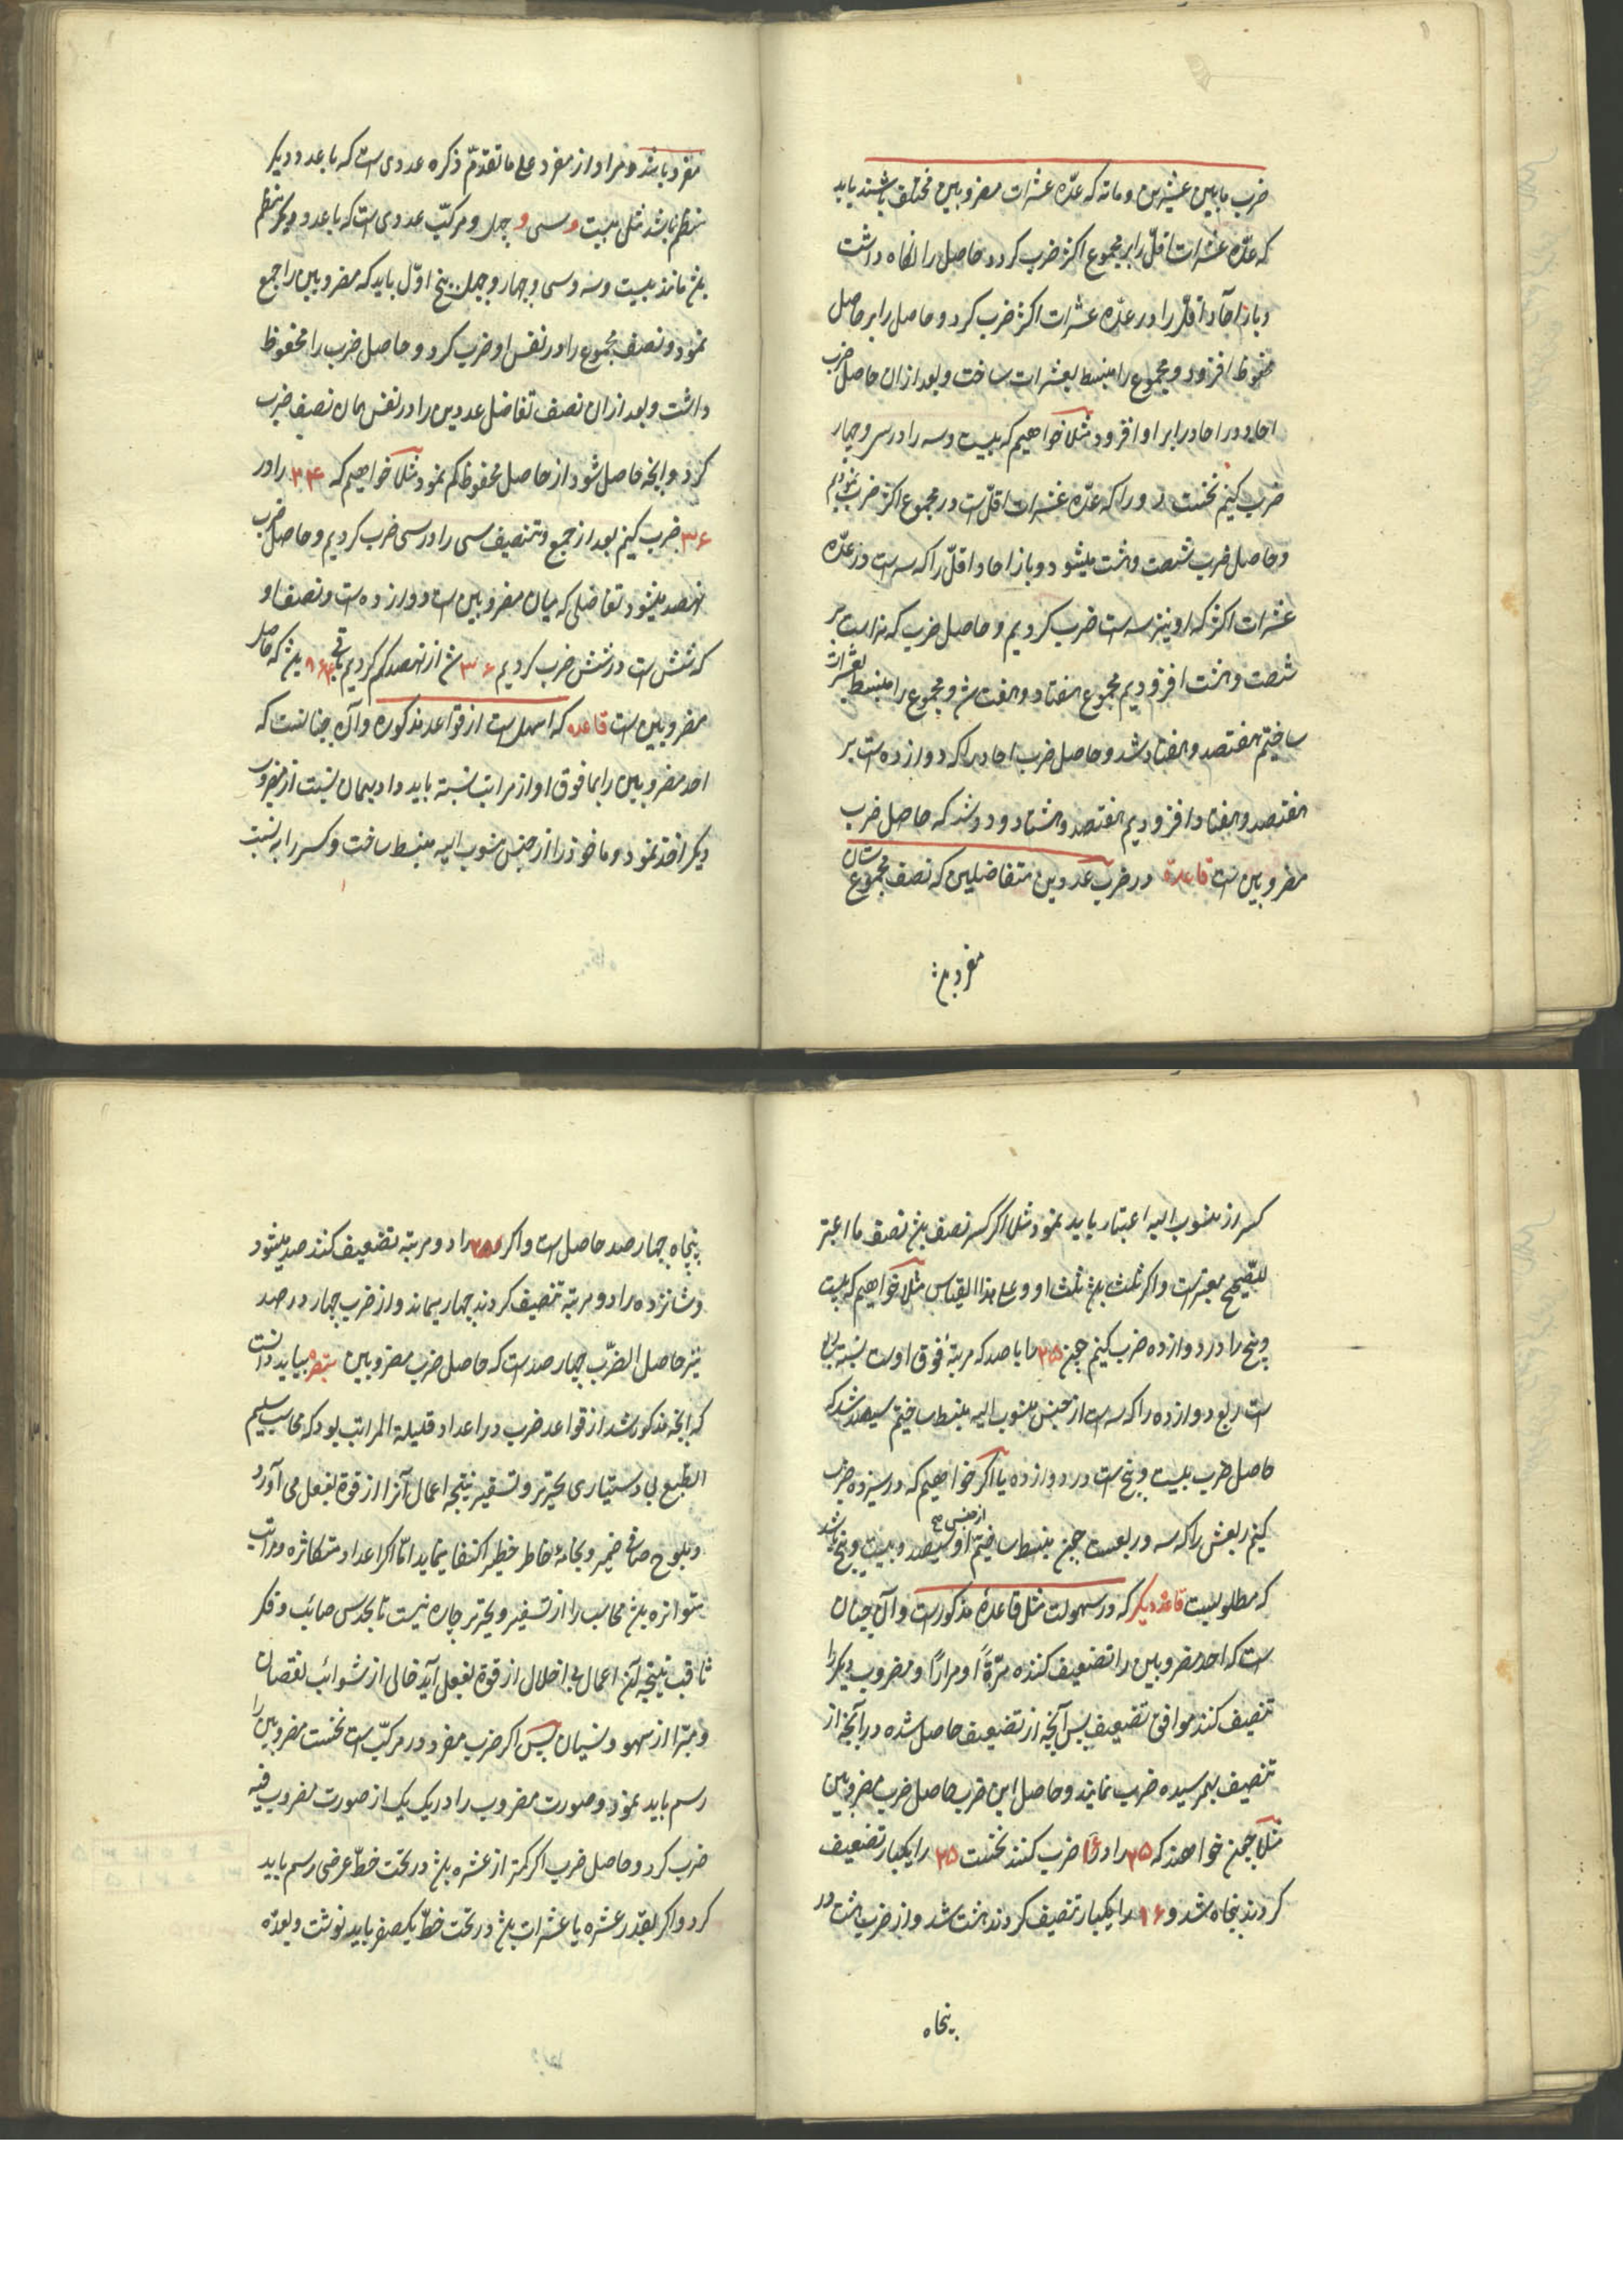 ضرب مابین عشرین و مائه که عدّه عشرات مضروبین مختلف باشند باید
که عدّه عشرات اقلّ را بر مجموع اکثر ضرب کرد و حاصل را نگاه داشت
و باز آحاد اقلّ را در عدّه عشرات اکثر ضرب کرد و حاصل را بر حاصل
محفوظ افزود و مجموع را منبسط بعشرات ساخت و بعد از ان حاصل ضرب
احاد در احاد را بر او افزود مثلا خواهیم که بیست و سه را در سی و چهار
ضرب کنیم نخست دو را که عدّه عشرات اقلّ است در مجموع اکثر ضرب نمودیم
و حاصل ضرب شصت و هشت میشود و باز احاد اقلّ را که سه است در عدّه
عشرات اکثر که او نیز سه است ضرب کردیم و حاصل ضرب که نه است بر
شصت و هشت افزودیم مجموع هفتاد و هفت شد و مجموع را منبسط بعشرات
ساختیم هفتصد و هفتاد شد و حاصل ضرب احاد را که دوازده است بر
هفتصد و هفتاد افزودیم هفتصد و هشتاد و دو شد که حاصل ضرب
مضروبین است قاعدة در ضرب عددین متفاضلین که نصف مجموع شان
مفرد باشد
مفرد باشد و مراد از مفرد علی ما تقدّم ذکره عددی است که با عدد دیگر
منظم نباشد مثل بیست و سی و چهل و مرکّب عددی است که با عدد دیگر منظم
باشد مانند بیست و سه و سی و چهار و چهل و پنج اوّل باید که مضروبین را جمع
نمود و نصف مجموع را در نفس او ضرب کرد و حاصل ضرب را محفوظ
داشت و بعد از ان نصف تفاضل عددین را در نفس همان نصف ضرب
کرد و آنچه حاصل شود از حاصل محفوظ کم نمود مثلا خواهیم که ۲۴ را در
۳۶ ضرب کنیم بعد از جمع و تنصیف سی را در سی ضرب کردیم و حاصل ضرب
نهصد میشود تفاضلی که میان مضروبین است دوازده است و نصف او
که شش است در شش ضرب کردیم ۳۶ شد از نهصد کم کردیم باقی ۸۶۴ شد که حاصل
مضروبین است قاعده که اسهل است از قواعد مذکوره و آن چنانست که
احد مضروبین را بما فوق او از مراتب نسبة باید داد و بهمان نسبت از مضروب
دیگر اخذ نمود و ماخوذ را از جنس منسوب الیه منبسط ساخت و کسر را به نسبت
کسر از منسوب الیه اعتبار باید نمود مثلا اگر کسر نصف باشد نصف ما اعتبر
للتّصحیح معتبر است و اگر ثلث باشد ثلث او و علی هذا القیاس مثلا خواهیم که بیست
و پنج را در دوازده ضرب کنیم چون ۲۵ را با صد که مرتبهٔ فوق اوست نسبة ربعی
است ربع دوازده را که سه است از جنس منسوب الیه منبسط ساختیم سیصد شد که
حاصل ضرب بیست و پنج است در دوازده یا اگر خواهیم که در سیزده ضرب
کنیم ربعش را که سه و ربعست چون منبسط ساختیم از جنس صد او سیصد و بیست و پنج باشد
که مطلوبست قاعده دیگر که در سهولت مثل قاعدهٔ مذکورست و آن چنان
است که احد مضروبین را تضعیف کننده مرّةً او مرارًا و مضروب دیگر را
تنصیف کنند موافق تضعیف پس آنچه از تضعیف حاصل شده در آنچه از
تنصیف بهم رسیده ضرب نمایند و حاصل این ضرب حاصل ضرب مضروبین
مثلا چون خواهند که ۲۵ را در ۱۶ ضرب کنند نخست ۲۵ را یکبار تضعیف
کردند پنجاه شد و ۱۶ را یکبار تنصیف کردند هشت شد و از ضرب هشت در
پنجاه
پنجاه چهار صد حاصل است و اگر ۲۵ را دو مرتبه تضعیف کنند صد میشود
و شانزده را دو مرتبه تنصیف کردند چهار میماند و از ضرب چهار در صد
نیز حاصل الضّرب چهار صد است که حاصل ضرب مضروبین تبصره بباید دانست
که آنچه مذکور شد از قواعد ضرب در اعداد قلیلة المراتب بود که محاسب سلیم
الطّبع بی دستیاری تحریر و تسفیر نتیجه اعمال آنرا از قوة بفعل می آورد
و بلوح صافی ضمیر و بخامهٔ خاطر خطیر اکتفا ینماید امّا اگر اعداد متکاثره و مراتب
متواتره باشد محاسب را از تسفیر و تحریر چاره نیست تا بحدس صائب و فکر
ثاقب نتیجه آن اعمال بی اخلال از قوة بفعل آید خالی از شوائب نقصان
و مبرّا از سهو و نسیان پس اگر ضرب مفرد در مرکّب است نخست مضروبین را
رسم باید نمود و صورت مضروب را در یک یک از صورت مضروب فیه
ضرب کرد و حاصل ضرب اگر کمتر از عشره باشد در تحت خطّ عرضی رسم باید
کرد و اگر بقدر عشره یا عشرات باشد در تحت خطّ یکصفر باید نوشت و بعدّه